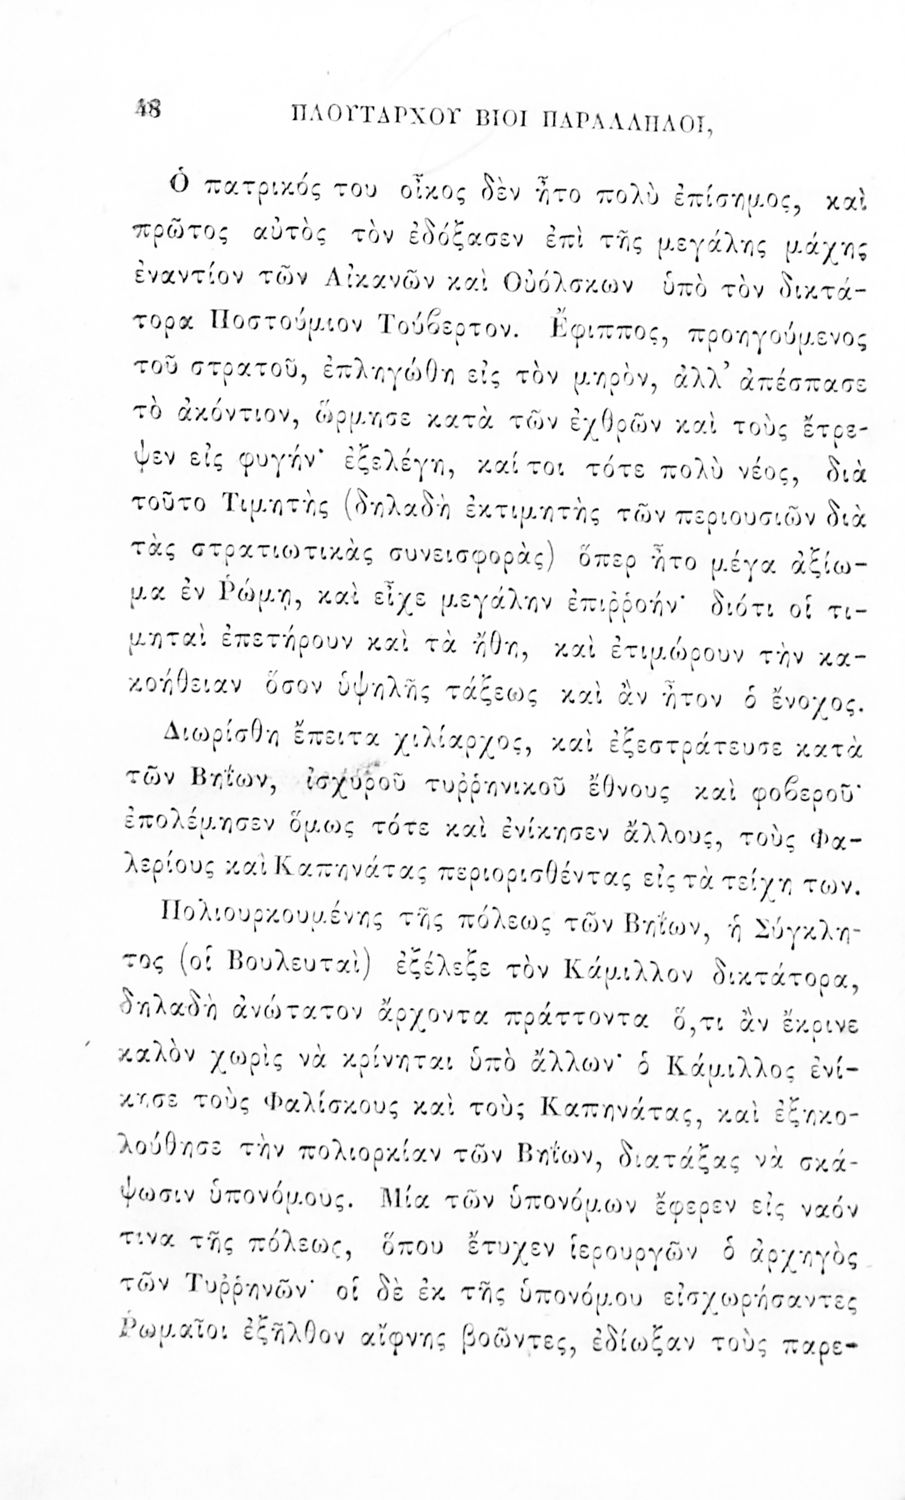 48
ΠΛΟΥΤΑΡΧΟΥ ΒΙΟΙ ΠΑΡΑΛΛΗΛΟΙ,
Ὁ πατρικός του οἶκος δὲν ἦτο πολὺ ἐπίσημος, καὶ
πρῶτος αὐτὸς τὸν ἐδόξασεν ἐπὶ τῆς μεγάλης μάχης
ἐναντίον τῶν Αἰκανῶν καὶ Οὐόλσκων ὑπὸ τὸν δικτά-
τορα Ποστούμιον Τούβερτον. Ἔφιππος, προηγούμενος
τοῦ στρατοῦ, ἐπληγώθη εἰς τὸν μηρὸν, ἀλλ’ ἀπέσπασε
τὸ ἀκόντιον, ὥρμησε κατὰ τῶν ἐχθρῶν καὶ τοὺς ἔτρε-
ψεν εἰς φυγήν· ἐξελέγη, καί τοι τότε πολὺ νέος, διὰ
τοῦτο Τιμητὴς (δηλαδὴ ἐκτιμητὴς τῶν περιουσιῶν διὰ
τὰς στρατιωτικὰς συνεισφορὰς) ὅπερ ἦτο μέγα ἀξίω-
μα ἐν Ῥώμῃ, καὶ εἶχε μεγάλην ἐπιῤῥοήν· διότι οἱ τι-
μηταὶ ἐπετήρουν καὶ τὰ ἤθη, καὶ ἐτιμώρουν τὴν κα-
κοήθειαν ὅσον ὑψηλῆς τάξεως καὶ ἂν ἦτον ὁ ἔνοχος.
Διωρίσθη ἔπειτα χιλίαρχος, καὶ ἐξεστράτευσε κατὰ
τῶν Βηΐων, ἰσχυροῦ τυῤῥηνικοῦ ἔθνους καὶ φοβεροῦ·
ἐπολέμησεν ὅμως τότε καὶ ἐνίκησεν ἄλλους, τοὺς Φα-
λερίους καὶ Καπηνάτας περιορισθέντας εἰς τὰ τείχη των.
Πολιουρκουμένης τῆς πόλεως τῶν Βηΐων, ἡ Σύγκλη-
τος (οἱ Βουλευταὶ) ἐξέλεξε τὸν Κάμιλλον δικτάτορα,
δηλαδὴ ἀνώτατον ἄρχοντα πράττοντα ὅ,τι ἂν ἔκρινε
καλὸν χωρὶς νὰ κρίνηται ὑπὸ ἄλλων· ὁ Κάμιλλος ἐνί-
κησε τοὺς Φαλίσκους καὶ τοὺς Καπηνάτας, καὶ ἐξηκο-
λούθησε τὴν πολιορκίαν τῶν Βηΐων, διατάξας νὰ σκά-
ψωσιν ὑπονόμους. Μία τῶν ὑπονόμων ἔφερεν εἰς ναόν
τινα τῆς πόλεως, ὅπου ἔτυχεν ἱερουργῶν ὁ ἀρχηγὸς
τῶν Τυῤῥηνῶν· οἱ δὲ ἐκ τῆς ὑπονόμου εἰσχωρήσαντες
Ῥωμαῖοι ἐξῆλθον αἴφνης βοῶντες, ἐδίωξαν τοὺς παρε-